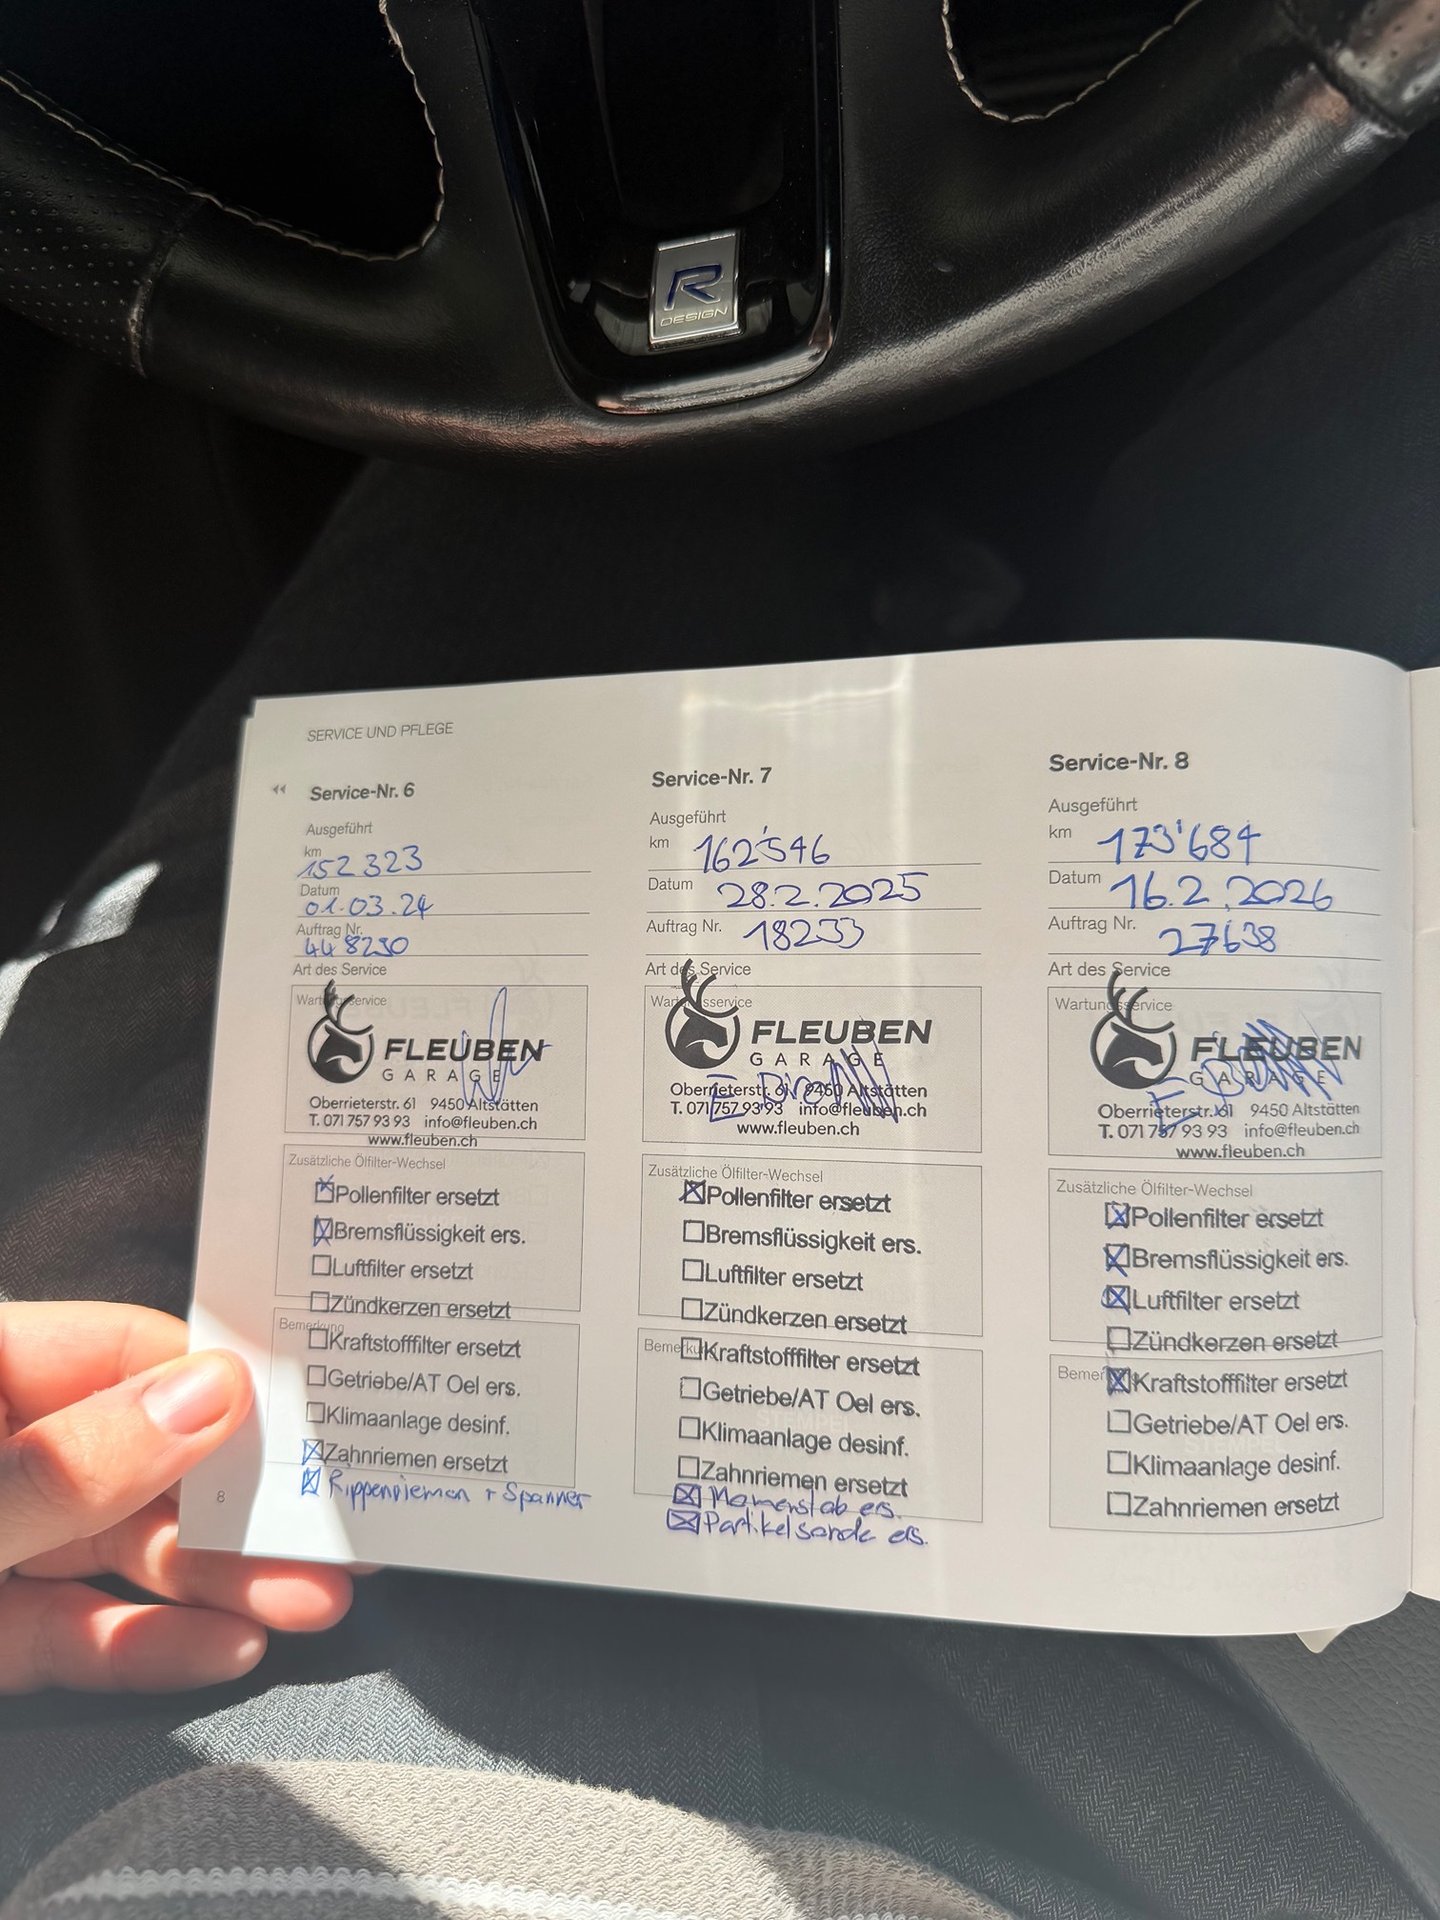 R
DESIGN
SERVICE UND PFLEGE
Service-Nr. 6
Ausgeführt
km 152 323
Datum 01.03.24
Auftrag Nr. 448230
Art des Service
Wartungsservice
FLEUBEN
GARAGE
Oberrieterstr. 61 9450 Altstätten
T. 071 757 93 93 info@fleuben.ch
www.fleuben.ch
Zusätzliche Ölfilter-Wechsel
☒Pollenfilter ersetzt
☒Bremsflüssigkeit ers.
☐Luftfilter ersetzt
☐Zündkerzen ersetzt
Bemerkung
☐Kraftstofffilter ersetzt
☐Getriebe/AT Oel ers.
☐Klimaanlage desinf.
☒Zahnriemen ersetzt
☒Rippenriemen + Spanner
8
Service-Nr. 7
Ausgeführt
km 162'546
Datum 28.2.2025
Auftrag Nr. 18233
Art des Service
Wartungsservice
FLEUBEN
GARAGE
Oberrieterstr. 61 9450 Altstätten
T. 071 757 93 93 info@fleuben.ch
www.fleuben.ch
Zusätzliche Ölfilter-Wechsel
☒Pollenfilter ersetzt
☐Bremsflüssigkeit ers.
☐Luftfilter ersetzt
☐Zündkerzen ersetzt
☐Kraftstofffilter ersetzt
☐Getriebe/AT Oel ers.
☐Klimaanlage desinf.
☐Zahnriemen ersetzt
☒ ers.
☒Partikelsonde ers.
Service-Nr. 8
Ausgeführt
km 173'684
Datum 16.2.2026
Auftrag Nr. 27638
Art des Service
Wartungsservice
FLEUBEN
GARAGE
Oberrieterstr. 61 9450 Altstätten
T. 071 757 93 93 info@fleuben.ch
www.fleuben.ch
Zusätzliche Ölfilter-Wechsel
☒Pollenfilter ersetzt
☒Bremsflüssigkeit ers.
☒Luftfilter ersetzt
☐Zündkerzen ersetzt
☒Kraftstofffilter ersetzt
☐Getriebe/AT Oel ers.
☐Klimaanlage desinf.
☐Zahnriemen ersetzt